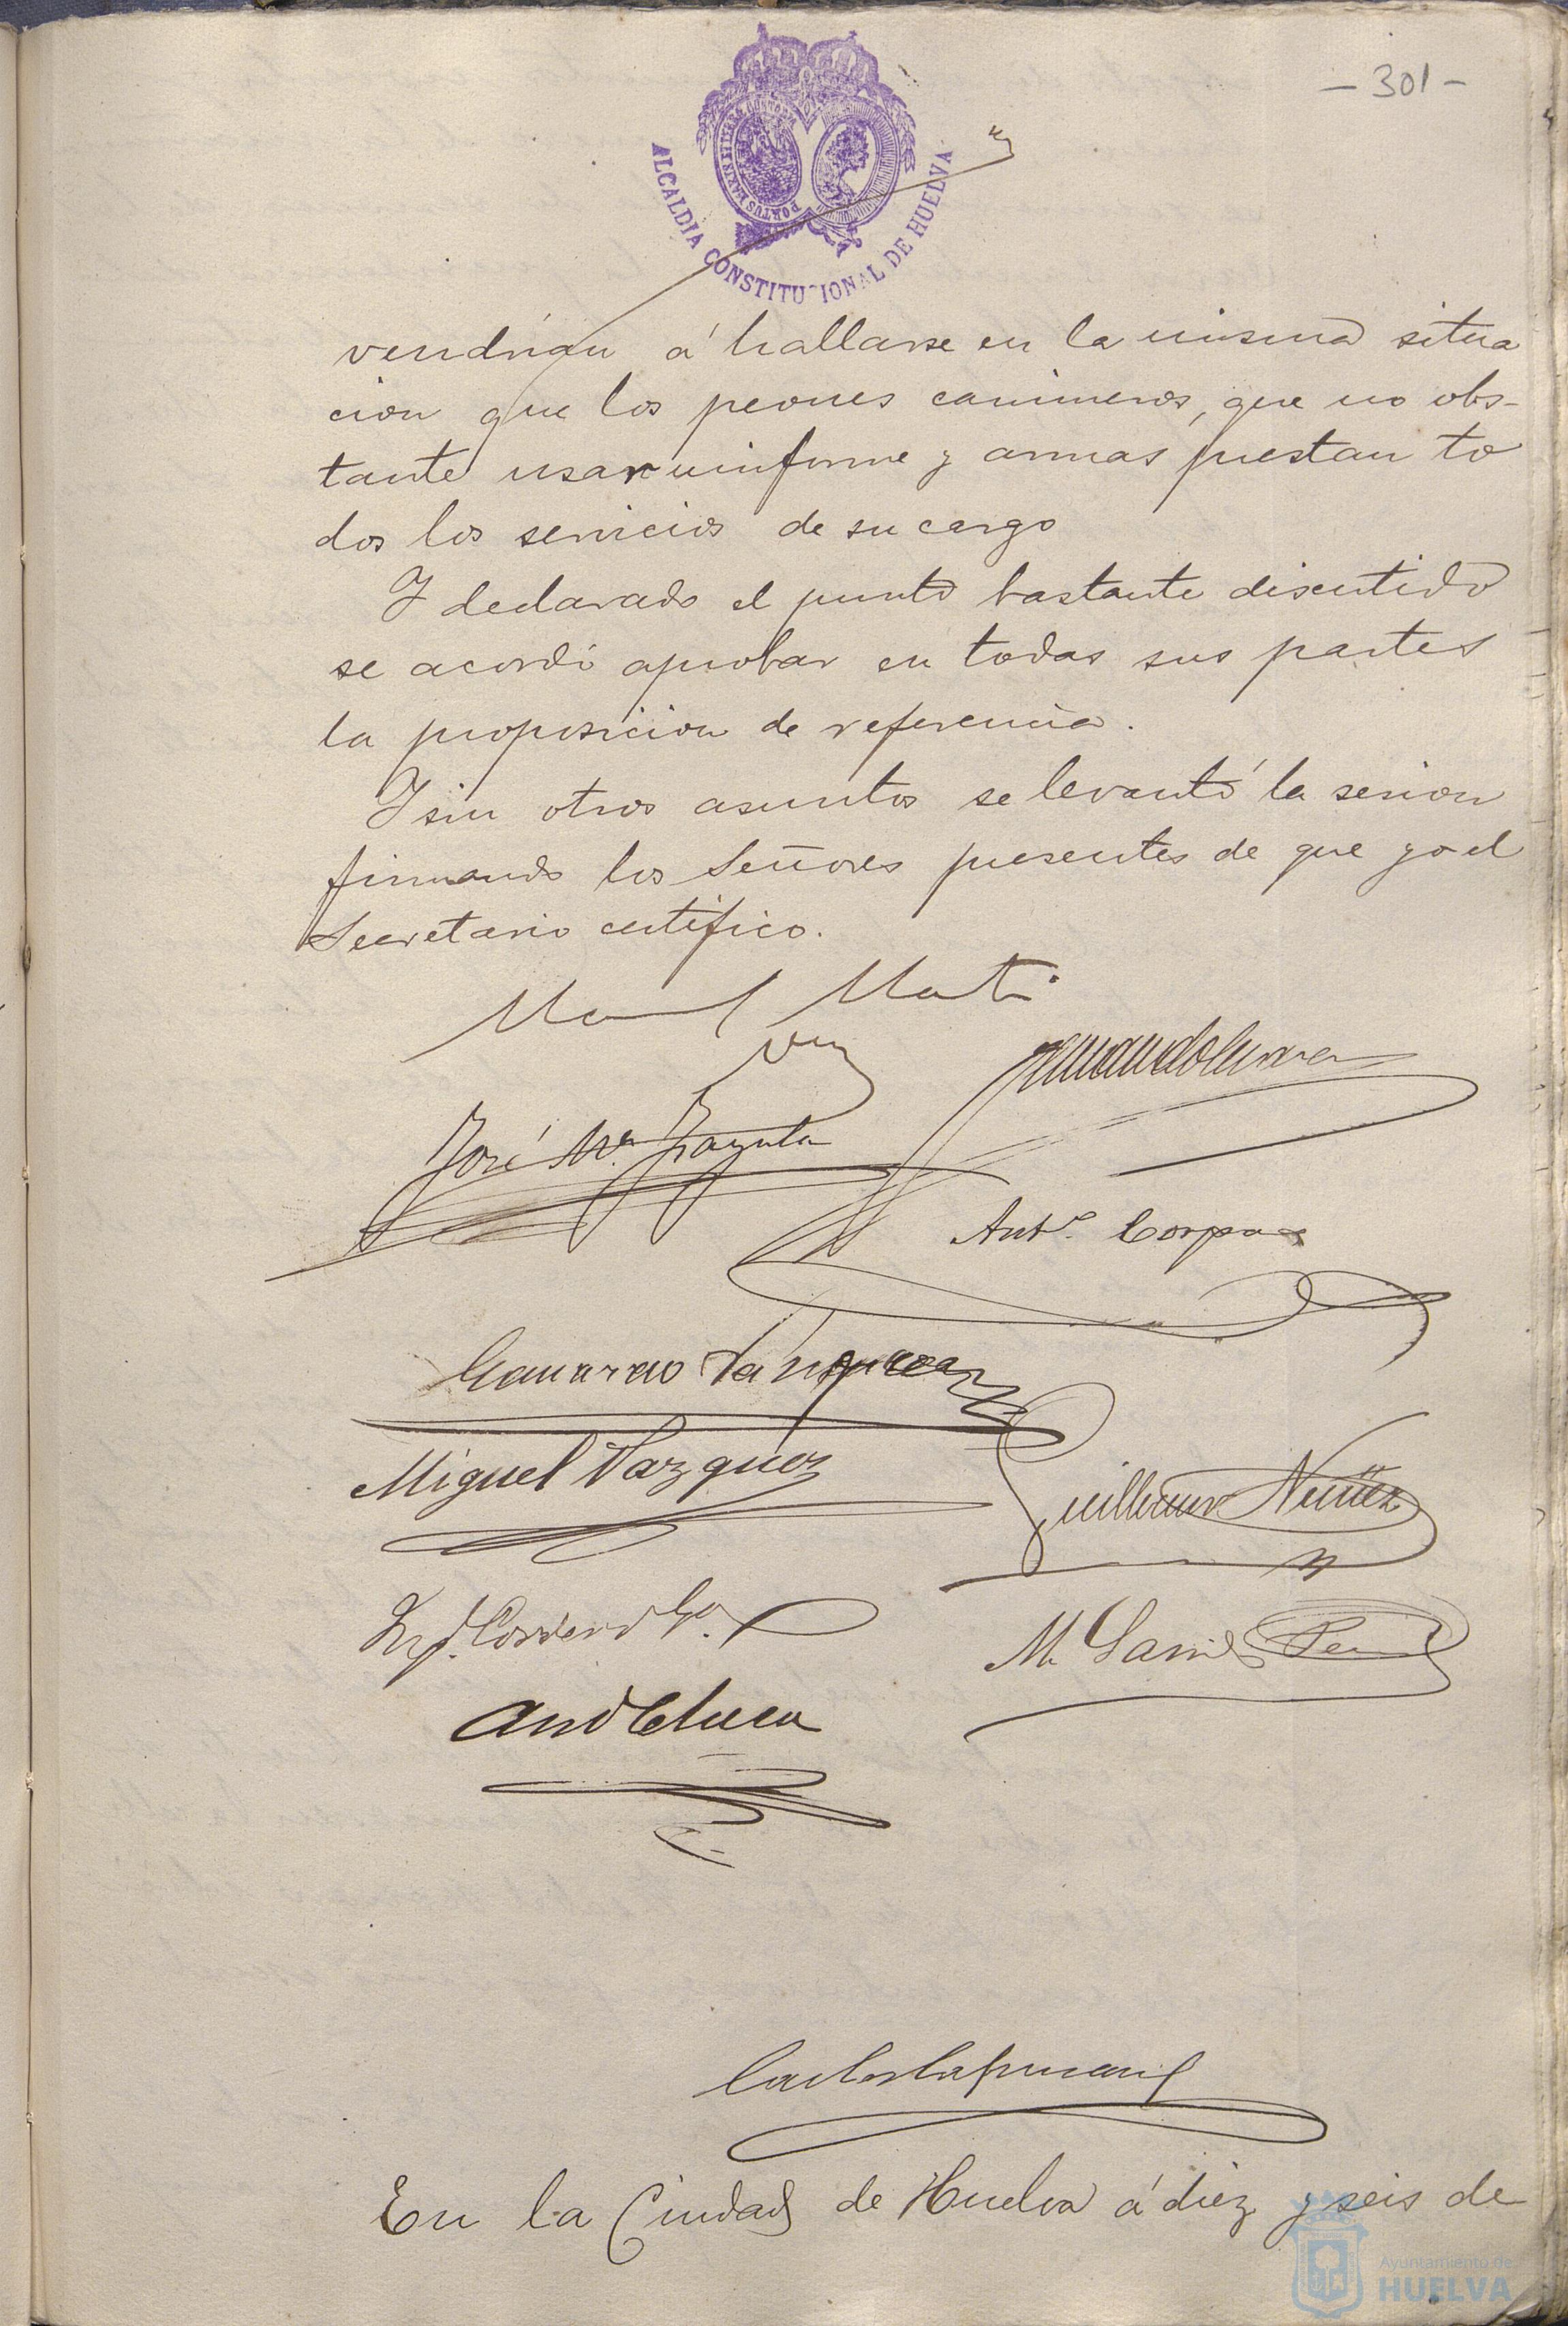 - 301 -
PORTUS MARIS ET TERRÆ CUSTODIA
ALCALDIA CONSTITUCIONAL DE HUELVA
vendrian á hallarse en la misma situa
cion que los peones camineros, que no obs-
tante usar uniforme y armas prestan to
dos los servicios de su cargo
Y declarado el punto bastante discutido
se acordó aprobar en todas sus partes
la proposicion de referencia.
Y sin otros asuntos se levantó la sesion
firmando los Señores presentes de que yo el
Secretario certifico.
José Mª
Antº. Corpas
Miguel Vazquez
Guillermo Nuñez
M. Garrido
En la Ciudad de Huelva á diez y seis de
Ayuntamiento de
HUELVA